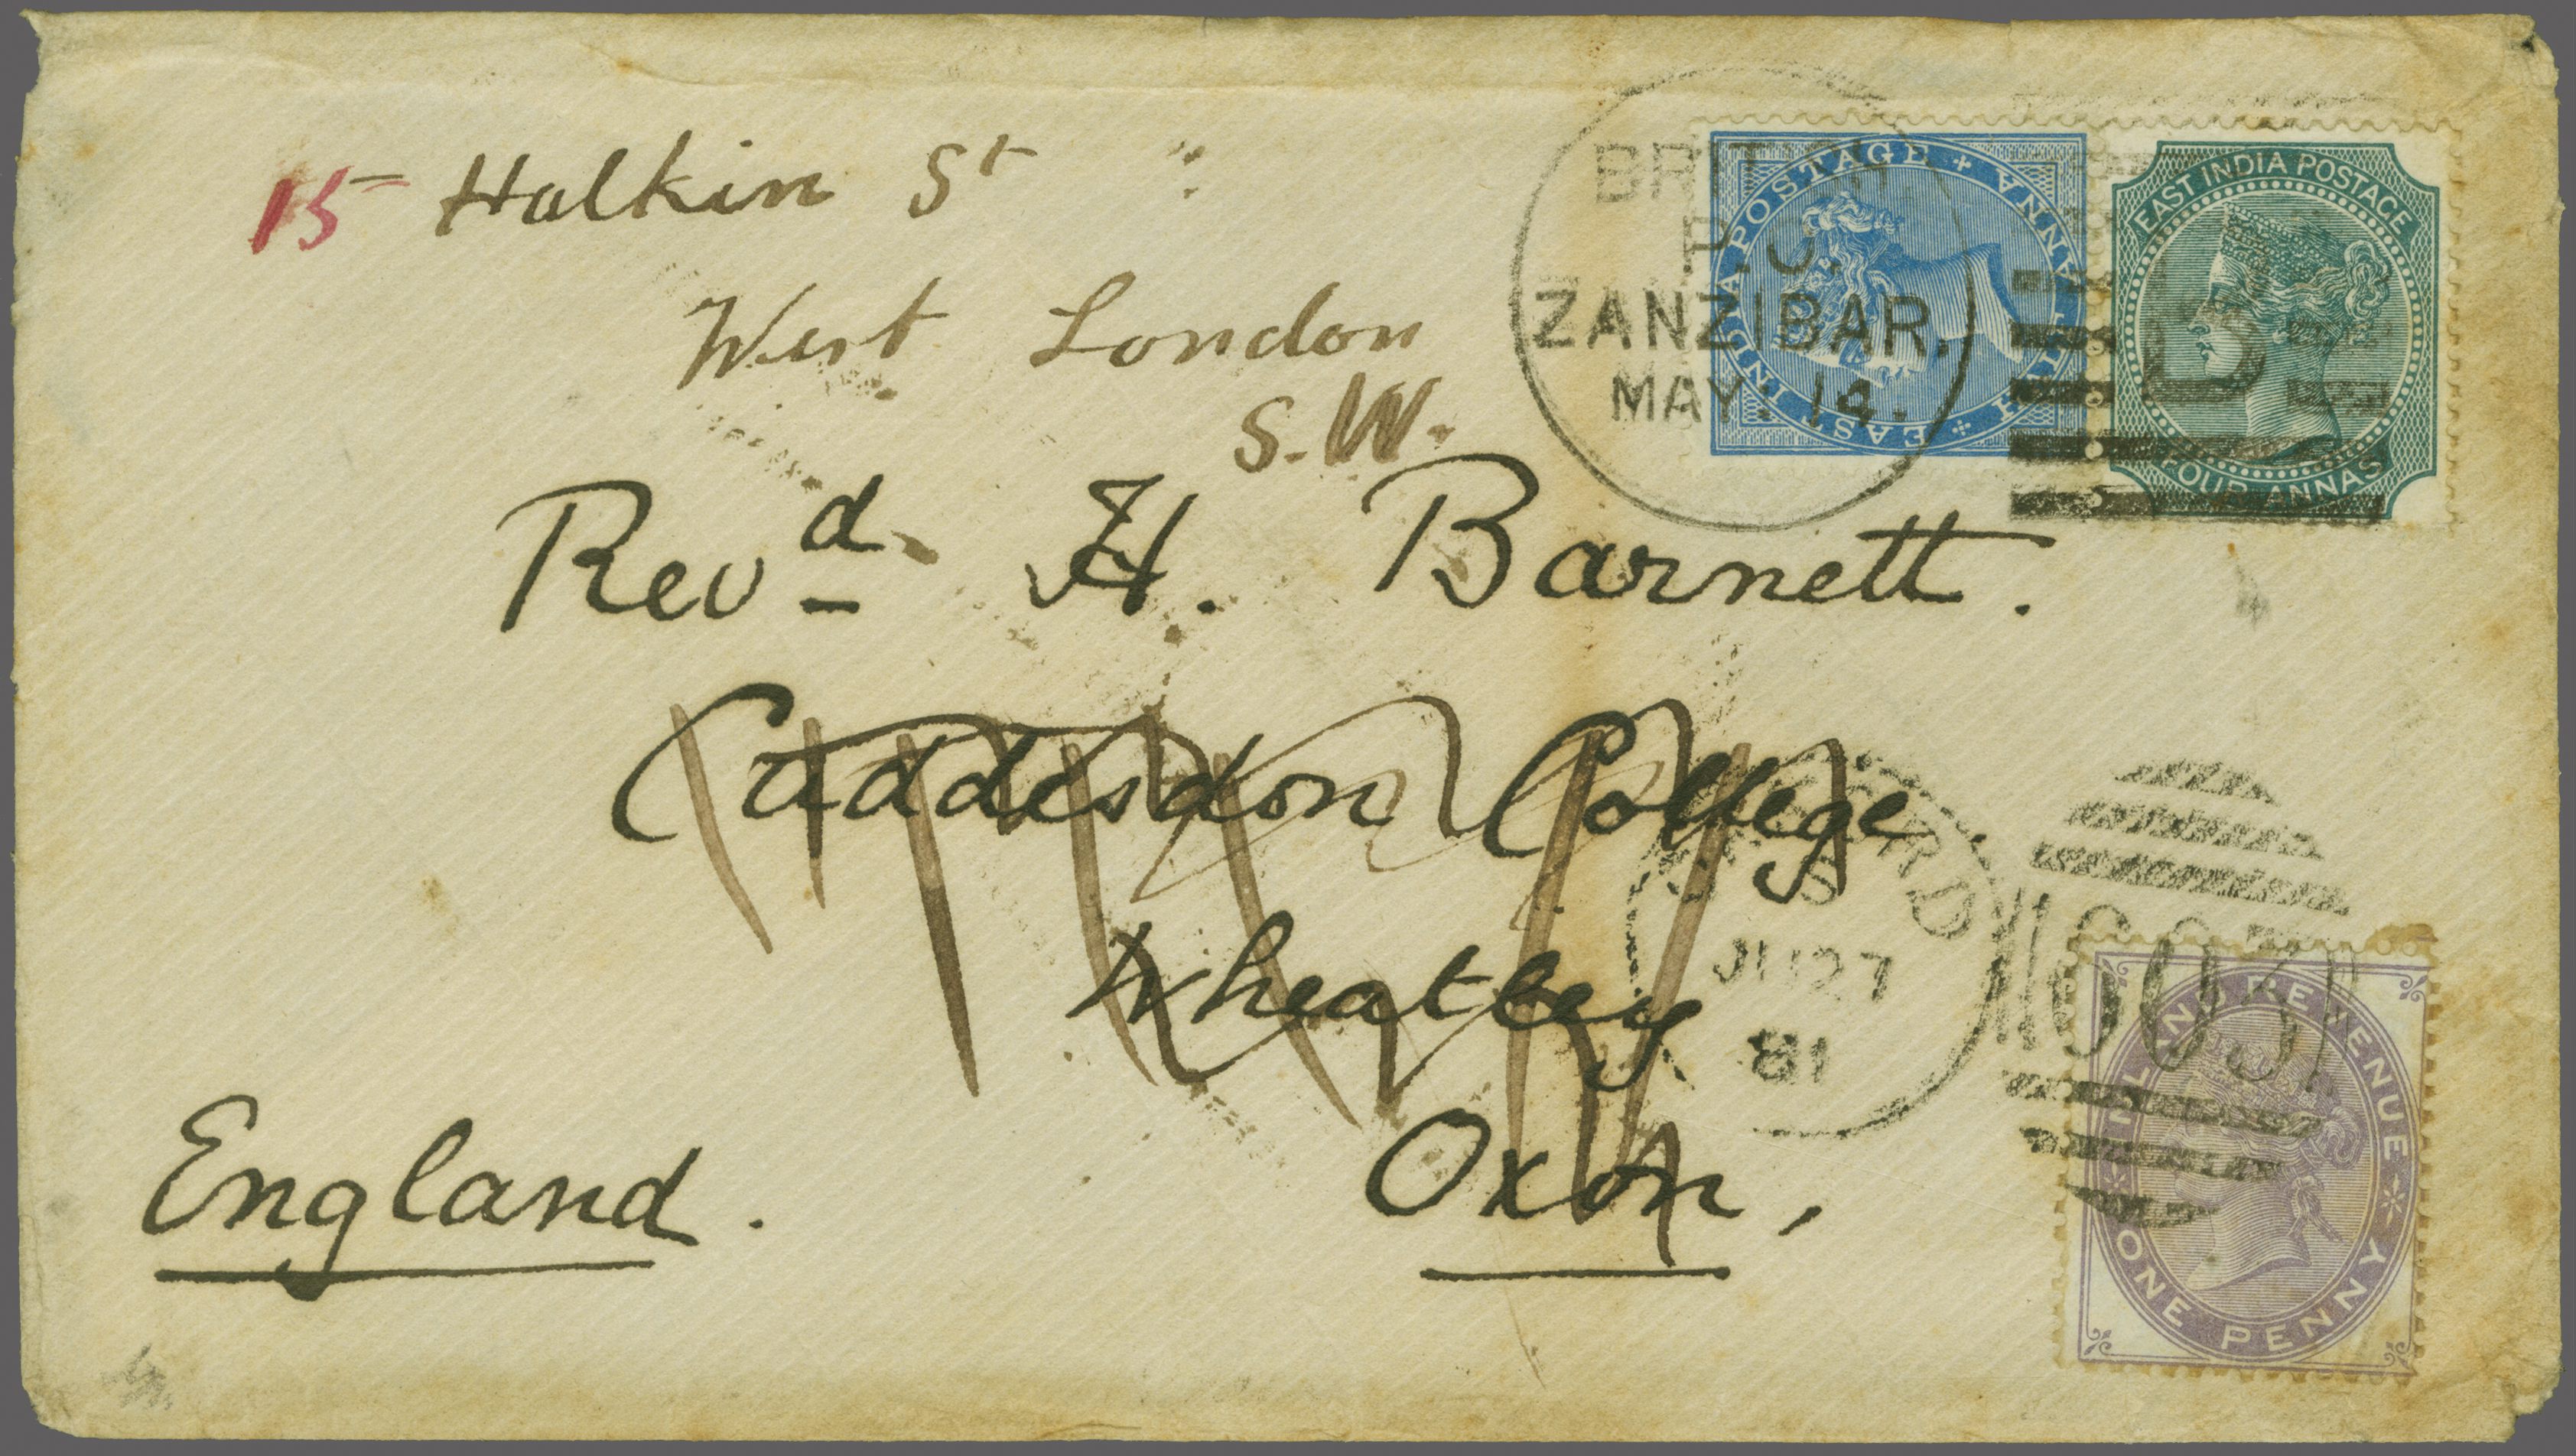 15 Halkin St
West London
S.W.
Revd. H. Barnett.
Cuddesdon College
Wheatley
Oxon,
England.
P.O.
ZANZIBAR.
MAY. 14.
EAST INDIA POSTAGE
HALF ANNA
EAST INDIA POSTAGE
FOUR ANNAS
JU 27
81
603
INLAND REVENUE
ONE PENNY